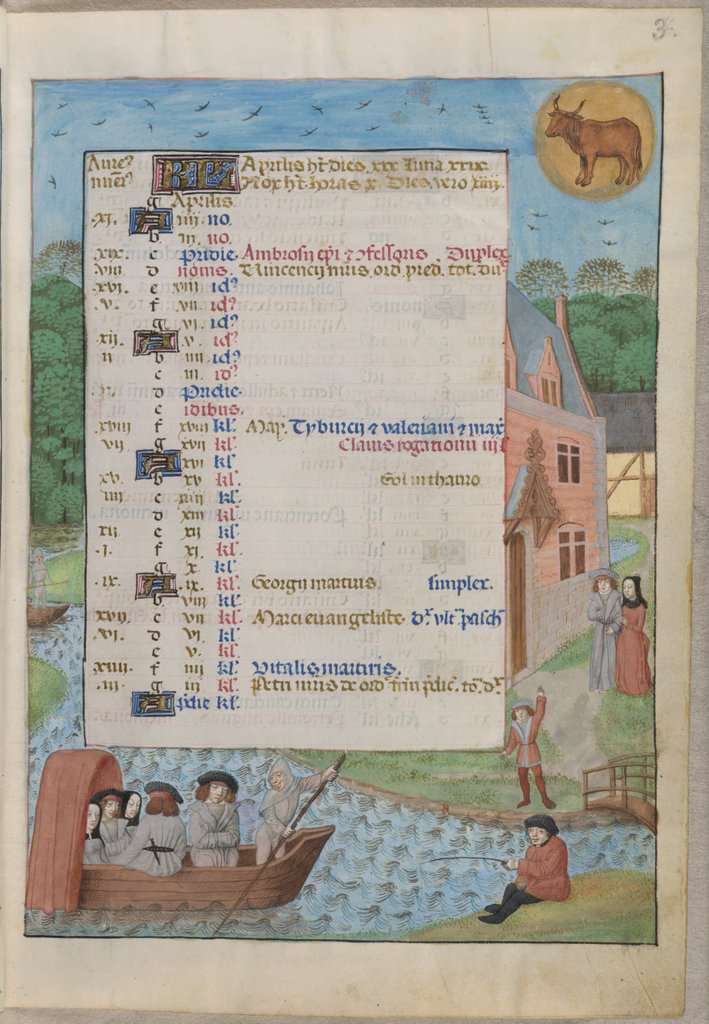 3.
Aure9 KL Aprilis ht dies xxx luna xxix
nuer9 Nox ht horas x. Dies vero xiiii.
g Aprilis
.xi. A iiii no.
b iii. no.
.xix. c pridie Ambrosii epi ⁊ ꝯfessoris Duplex
viii d nonis. Vincencii mris. ord. pred. tot. du
.xvi. e viii id9
.v. f vii id9
g vi. id9
.xii. A v. id9
ii b iiii id9
c iii. id9
d Pridie
e idibus.
xviii f xviii kl'. May. Tyburcii ⁊ valeriani ⁊ max
vii g xvii kl'. Clauis rogationu iiii
A xvi kl'.
xv. b xv kl'. Sol in thauro
iiii c xiiii kl'.
d xiii kl'.
xii e xii kl'.
.i. f xi. kl'.
g x. kl'.
.ix. A ix. kl'. Georgii martiris. simplex.
b viii kl'.
xvii c vii kl'. Marci euangeliste. d9 vlt9 pasch
.vi. d vi. kl'.
e v. kl'.
xiiii f iiii kl'. Vitalis martiris.
.iii. g iii kl'. Petri mris de ord frm pdic. to. d9
A pdie kl'.